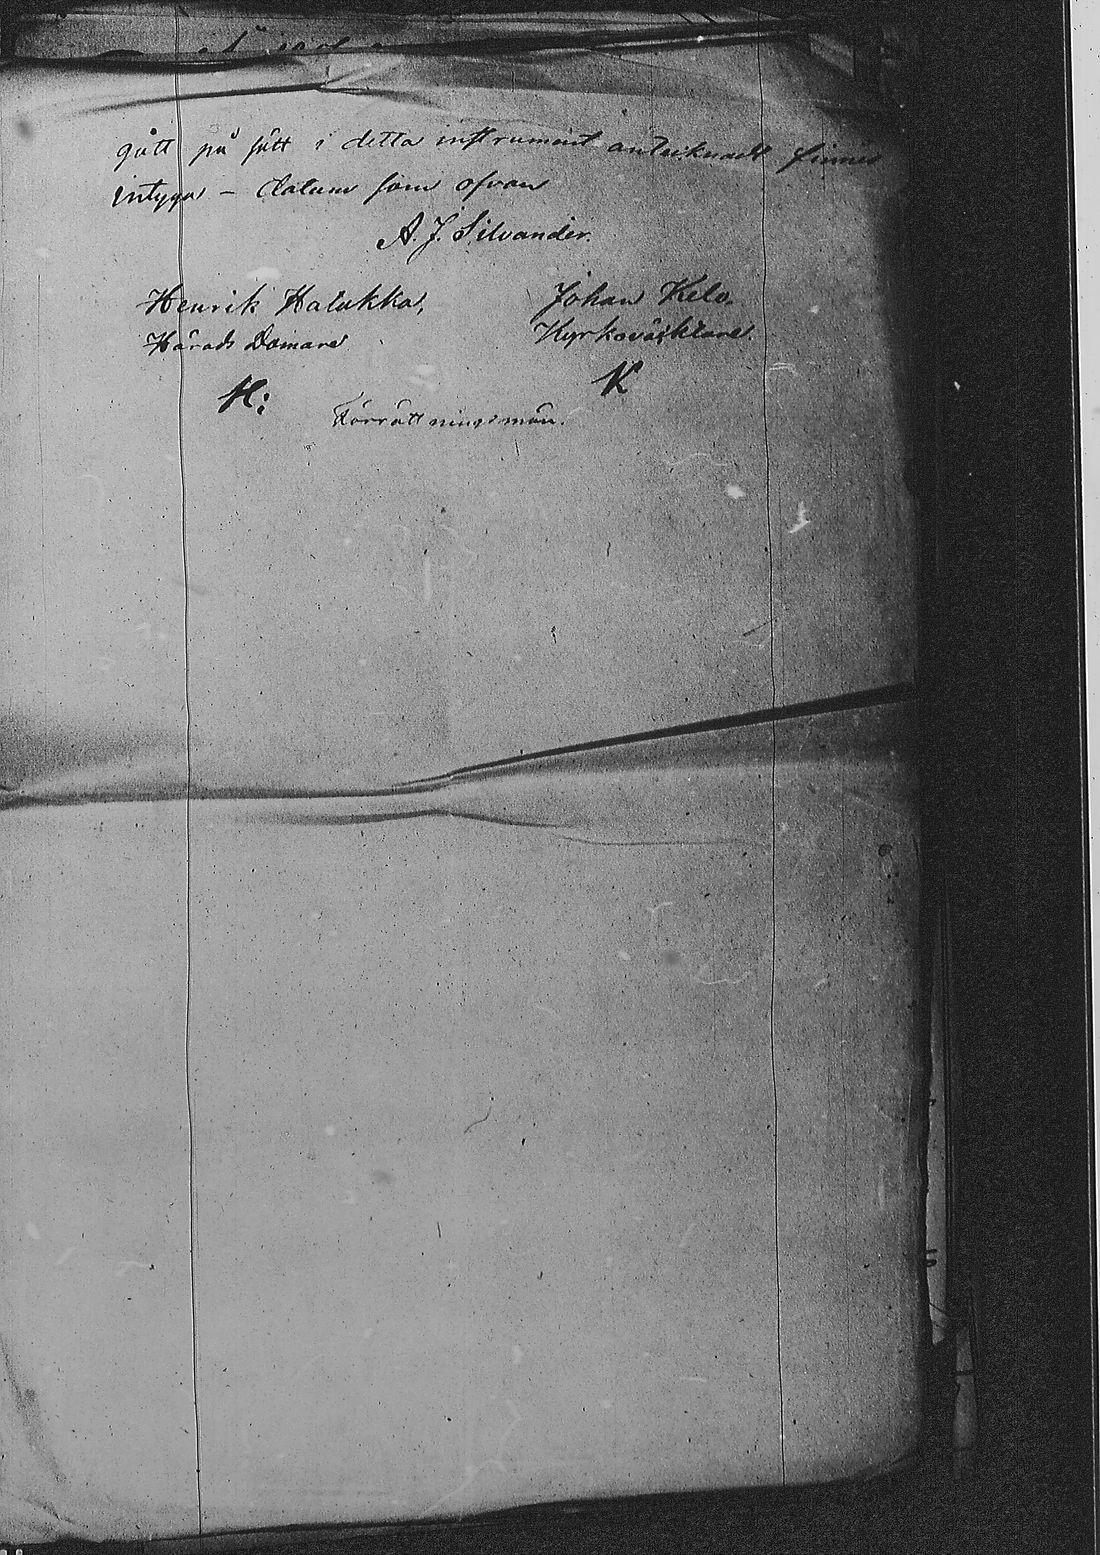 gått på sätt i detta instrument antecknadt finnes
intyga – datum som ofvan
A. J. Silvander.
Henrik Halukka, Johan Kelo.
Härads Domare Kyrkoväktare.
H: K
Förrättningsmän.